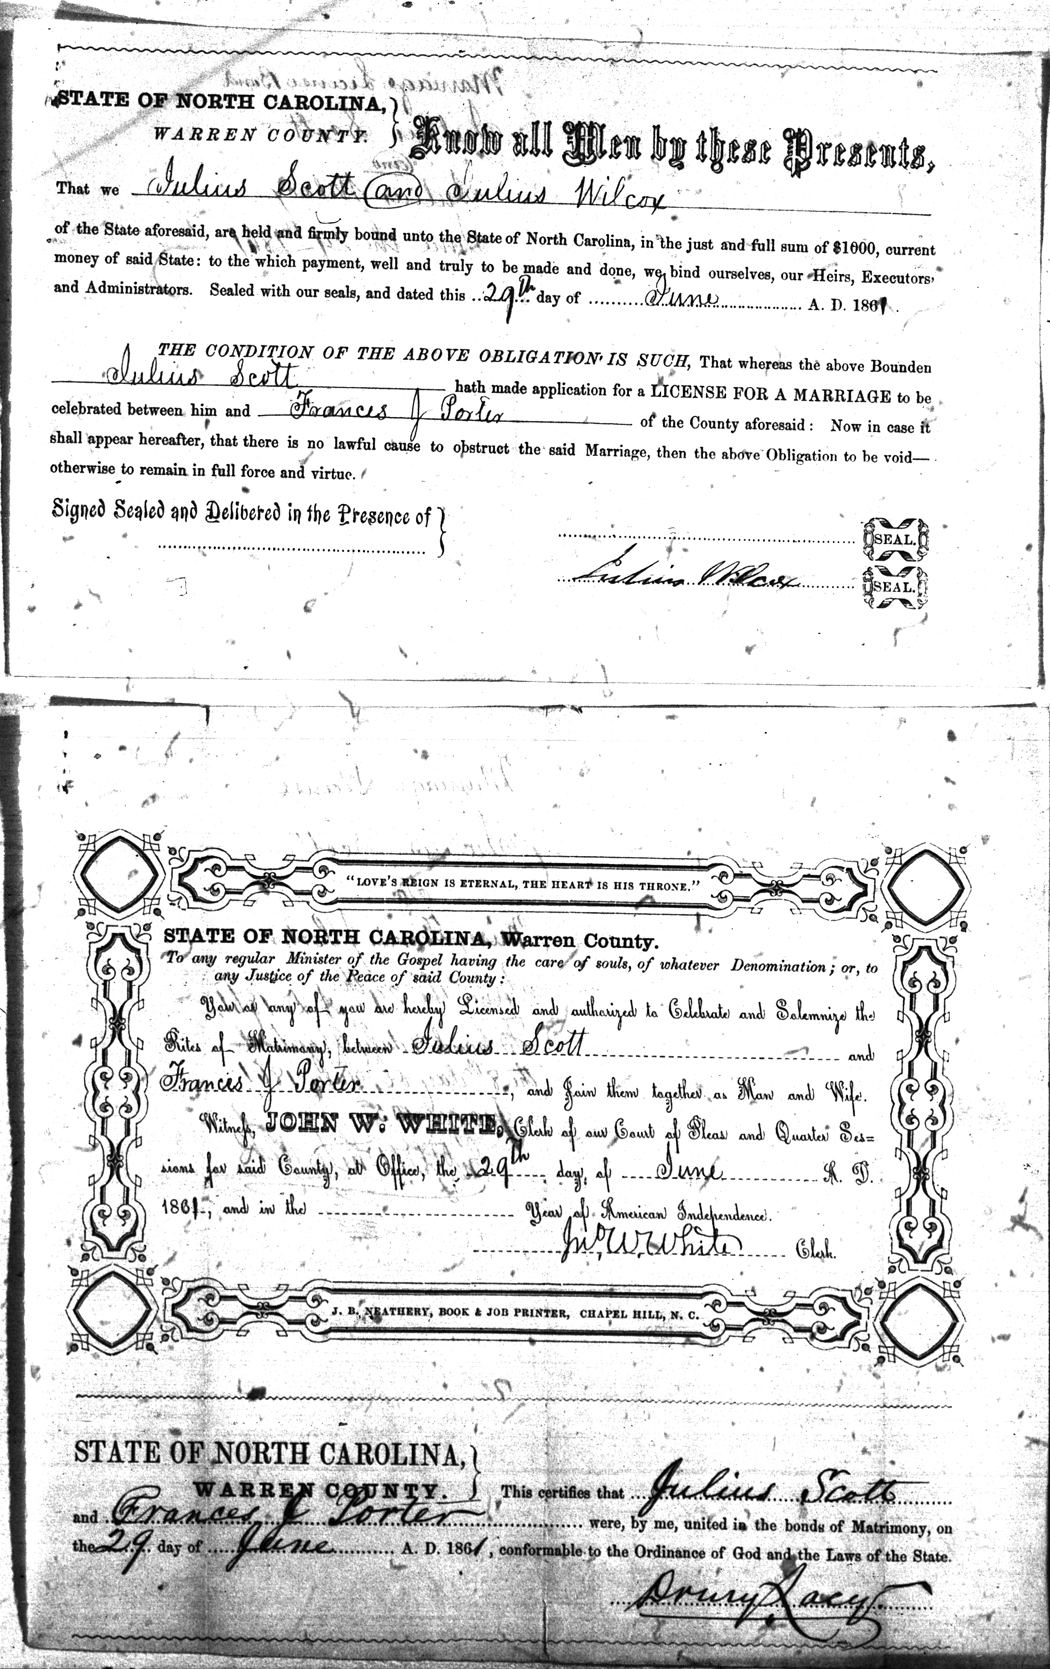 STATE OF NORTH CAROLINA,
WARREN COUNTY.
Know all Men by these Presents,
That we Julius Scott and Julius Wilcox
of the State aforesaid, are held and firmly bound unto the State of North Carolina, in the just and full sum of $1000, current
money of said State: to the which payment, well and truly to be made and done, we bind ourselves, our Heirs, Executors,
and Administrators. Sealed with our seals, and dated this 29th day of June A. D. 1861.
THE CONDITION OF THE ABOVE OBLIGATION IS SUCH, That whereas the above Bounden
Julius Scott hath made application for a LICENSE FOR A MARRIAGE to be
celebrated between him and Frances J Porter of the County aforesaid: Now in case it
shall appear hereafter, that there is no lawful cause to obstruct the said Marriage, then the above Obligation to be void—
otherwise to remain in full force and virtue.
Signed Sealed and Delibered in the Presence of
SEAL.
Julius Wilcox SEAL.
"LOVE'S REIGN IS ETERNAL, THE HEART IS HIS THRONE."
STATE OF NORTH CAROLINA, Warren County.
To any regular Minister of the Gospel having the care of souls, of whatever Denomination; or, to
any Justice of the Peace of said County:
You or any of you are hereby Licensed and authorized to Celebrate and Solemnize the
Rites of Matrimony, between Julius Scott and
Frances J Porter, and Join them together as Man and Wife.
Witness, JOHN W. WHITE, Clerk of our Court of Pleas and Quarter Ses=
sions for said County, at Office, the 29th day of June A. D.
1861, and in the Year of American Independence.
Jno. W. White Clerk.
J. B. NEATHERY, BOOK & JOB PRINTER, CHAPEL HILL, N. C.
STATE OF NORTH CAROLINA,
WARREN COUNTY.
This certifies that Julius Scott
and Frances J Porter were, by me, united in the bonds of Matrimony, on
the 29 day of June A. D. 1861, conformable to the Ordinance of God and the Laws of the State.
Drury Lacy